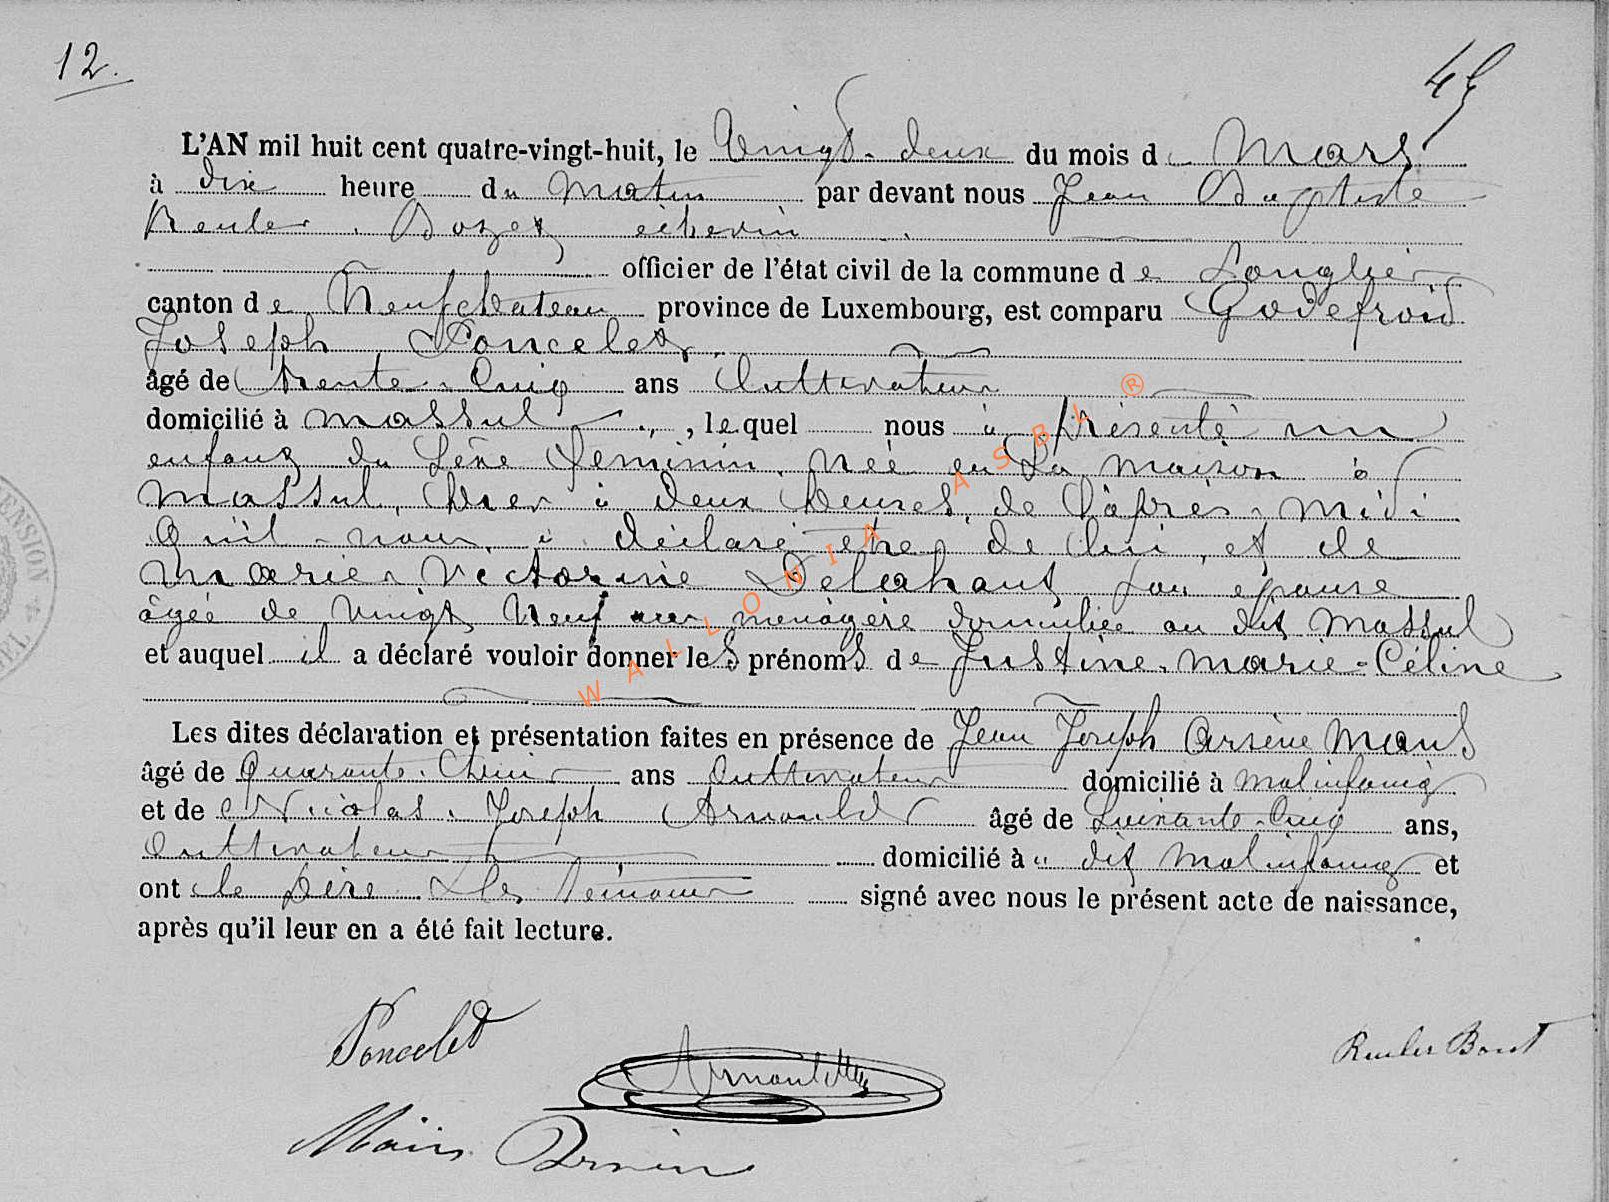 12.
45
L'AN mil huit cent quatre-vingt-huit, le Vingt-deux du mois de Mars
à dix heure du Matin par devant nous Jean Baptiste
Reuler. Bozet échevin
officier de l'état civil de la commune de Longlier
canton de Neufchateau province de Luxembourg, est comparu Godefroid
Joseph Poncelet
âgé de trente-Cinq ans Cultivateur
domicilié à Massul, lequel nous à présenté un
enfant du Sèxe feminin. Née en sa maison à
Massul, hier à deux heures, de l'après-midi
Qu'il nous à déclaré être de lui et de
Marie Victorine Delahaut son épouse
âgée de vingt Neuf ans menagère domiciliée au dit Massul
et auquel il a déclaré vouloir donner les prénoms de Justine-Marie-Céline
Les dites déclaration et présentation faites en présence de Jean Joseph Arsène Maus
âgé de Quarante ans Cultivateur domicilié à Molinfaing
et de Nicolas Joseph Arnould âgé de Soixante-Cinq ans,
Cultivateur domicilié à " dit Molinfaing et
ont le père & les témoins signé avec nous le présent acte de naissance,
après qu'il leur en a été fait lecture.
Poncelet
Arnould
Reuler Bozet
WALLONIA ASBL ®